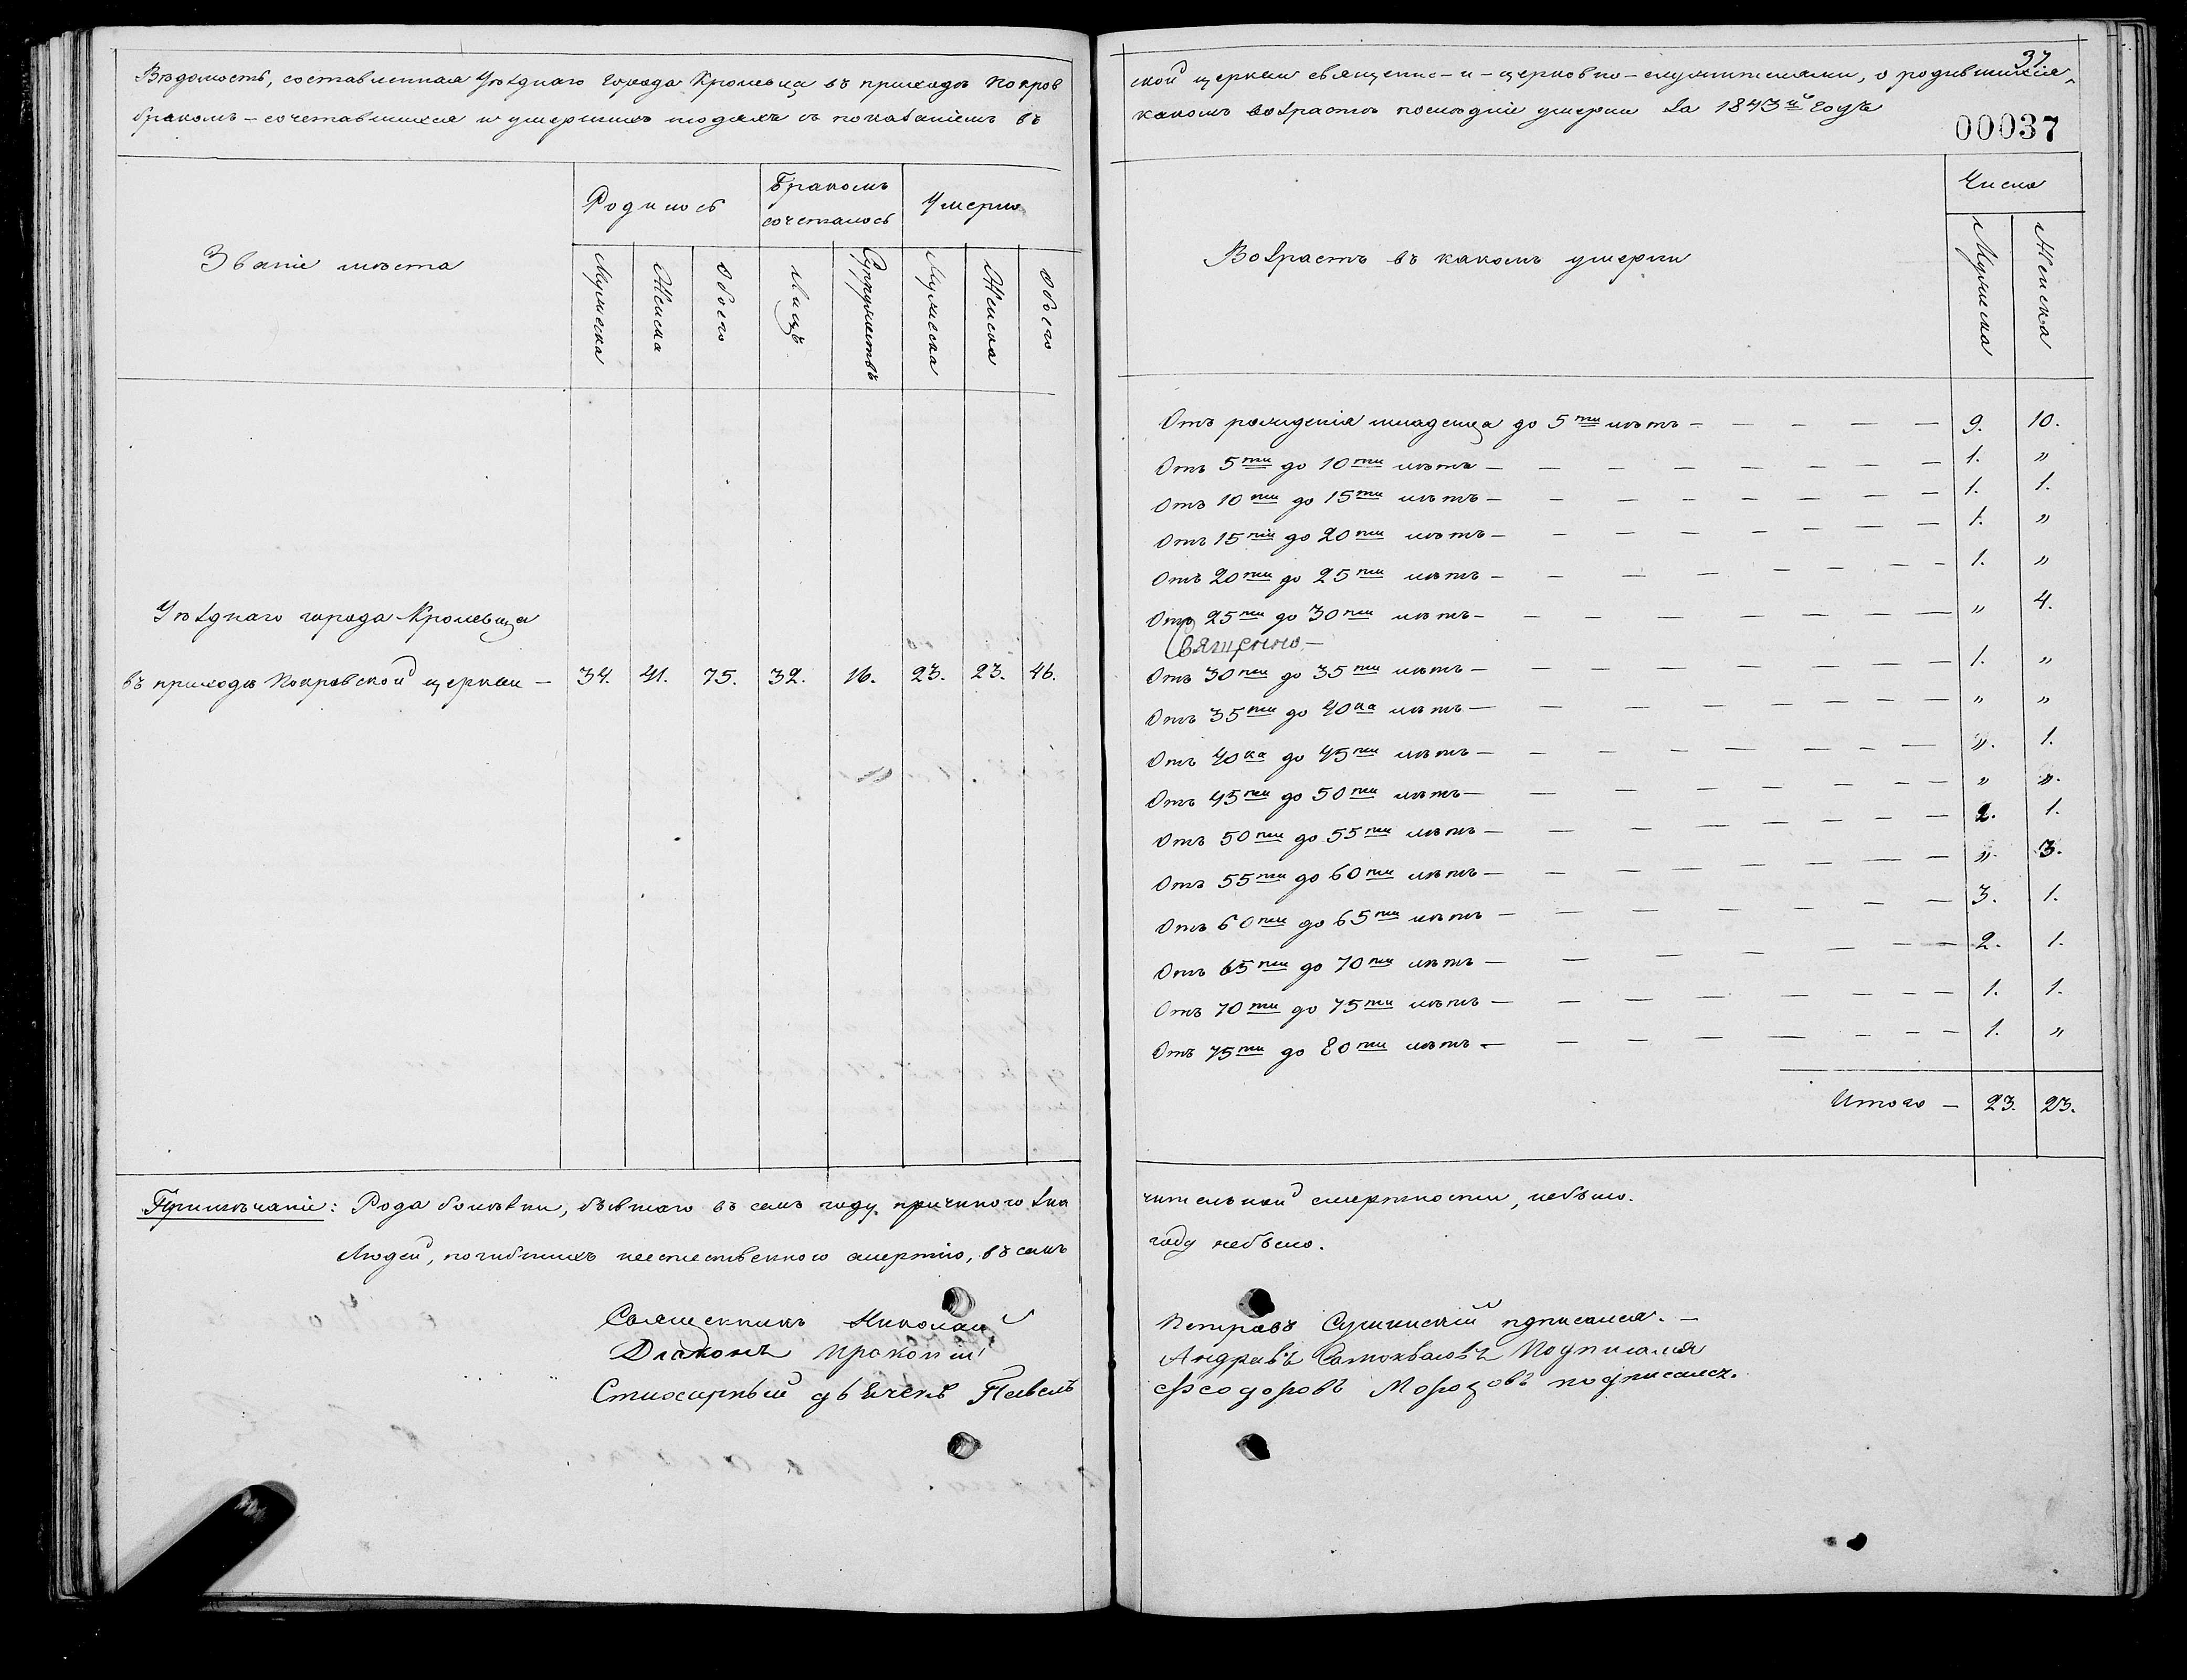 Вѣдомость, составленная Уѣзднаго города Кролевца въ приходѣ Покров
бракомъ-сочетавшихся и умершихъ людяхъ съ показаніемъ въ
Званіе мѣста
Родилось
Бракомъ
сочеталось
Умерло
Мужеска
Женска
Обоего
Лицъ
Супружествъ
Мужеска
Женска
Обоего
Уѣзднаго города Кролевца
въ приходѣ Покровской церкви — 34. 41. 75. 32. 16. 23. 23. 46.
Примѣчаніе: Рода болѣзни, бывшаго въ семъ году причиною зна
Людей, погибшихъ неестественною смертію, въ семъ
Священникъ Николай
Діаконъ Прокопій
Стихарный дьячекъ Павелъ
37
ской церкви священно-и-церковно-служителями, о родившихся,
какомъ возрастѣ послѣдніе умерли за 1843й годъ
00037
Возрастъ въ какомъ умерли
Число
Мужеска
Женска
Отъ рожденія младенца до 5ти лѣтъ — 9. 10.
Отъ 5ти до 10ти лѣтъ — 1. „
Отъ 10ти до 15ти лѣтъ — 1. 1.
Отъ 15ти до 20ти лѣтъ — 1. „
Отъ 20ти до 25ти лѣтъ — 1. „
Отъ 25ти до 30ти лѣтъ — „ 4.
Священно —
Отъ 30ти до 35ти лѣтъ — 1. „
Отъ 35ти до 40ка лѣтъ — „ „
Отъ 40ка до 45ти лѣтъ — „. 1.
Отъ 45ти до 50ти лѣтъ — „ „.
Отъ 50ти до 55ти лѣтъ — 2. 1.
Отъ 55ти до 60ти лѣтъ — „. 3.
Отъ 60ти до 65ти лѣтъ — 3. 1.
Отъ 65ти до 70ти лѣтъ — 2. 1.
Отъ 70ти до 75ти лѣтъ — 1. 1.
Отъ 75ти до 80ти лѣтъ — 1. „
Итого — 23. 23.
чительной смертности, небыло.
году небыло.
Петровъ Сушинскій подписался. —
Андреевъ Самоквасовъ Подписался
Феодоровъ Морозовъ подписался.